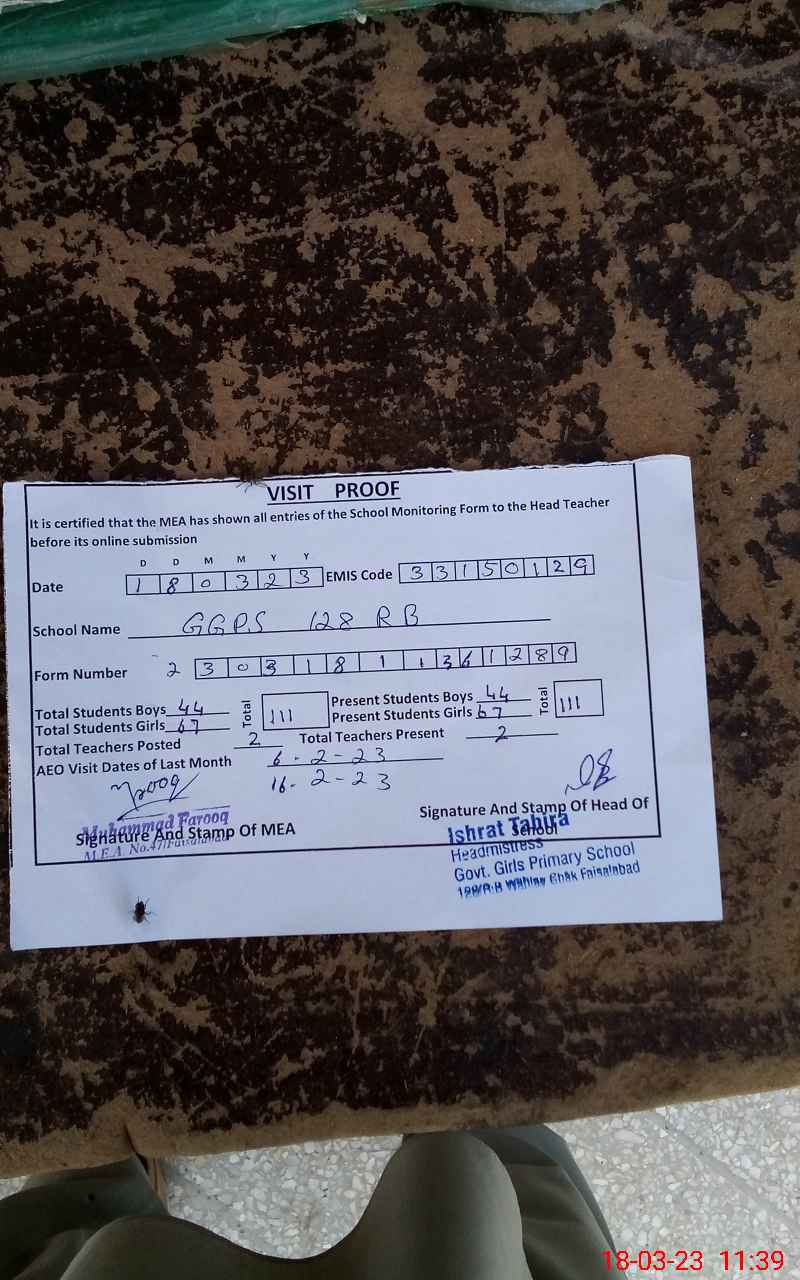 VISIT PROOF
It is certified that the MEA has shown all entries of the School Monitoring Form to the Head Teacher
before its online submission
D D M M Y Y
Date 1 8 0 3 2 3 EMIS Code 3 3 1 5 0 1 2 9
School Name GGPS 128 RB
Form Number 2 3 0 3 1 8 1 1 3 6 1 2 8 9
Total Students Boys 44 Total 111 Present Students Boys 44 Total 111
Total Students Girls 67 Present Students Girls 67
Total Teachers Posted 2 Total Teachers Present 2
AEO Visit Dates of Last Month 6-2-23
16-2-23
Muhammad Farooq
Signature And Stamp Of MEA
M.E.A. No.47/Faisalabad
Signature And Stamp Of Head Of
School
Ishrat Tahira
Headmistress
Govt. Girls Primary School
128/R.B Chak Faisalabad
18-03-23 11:39